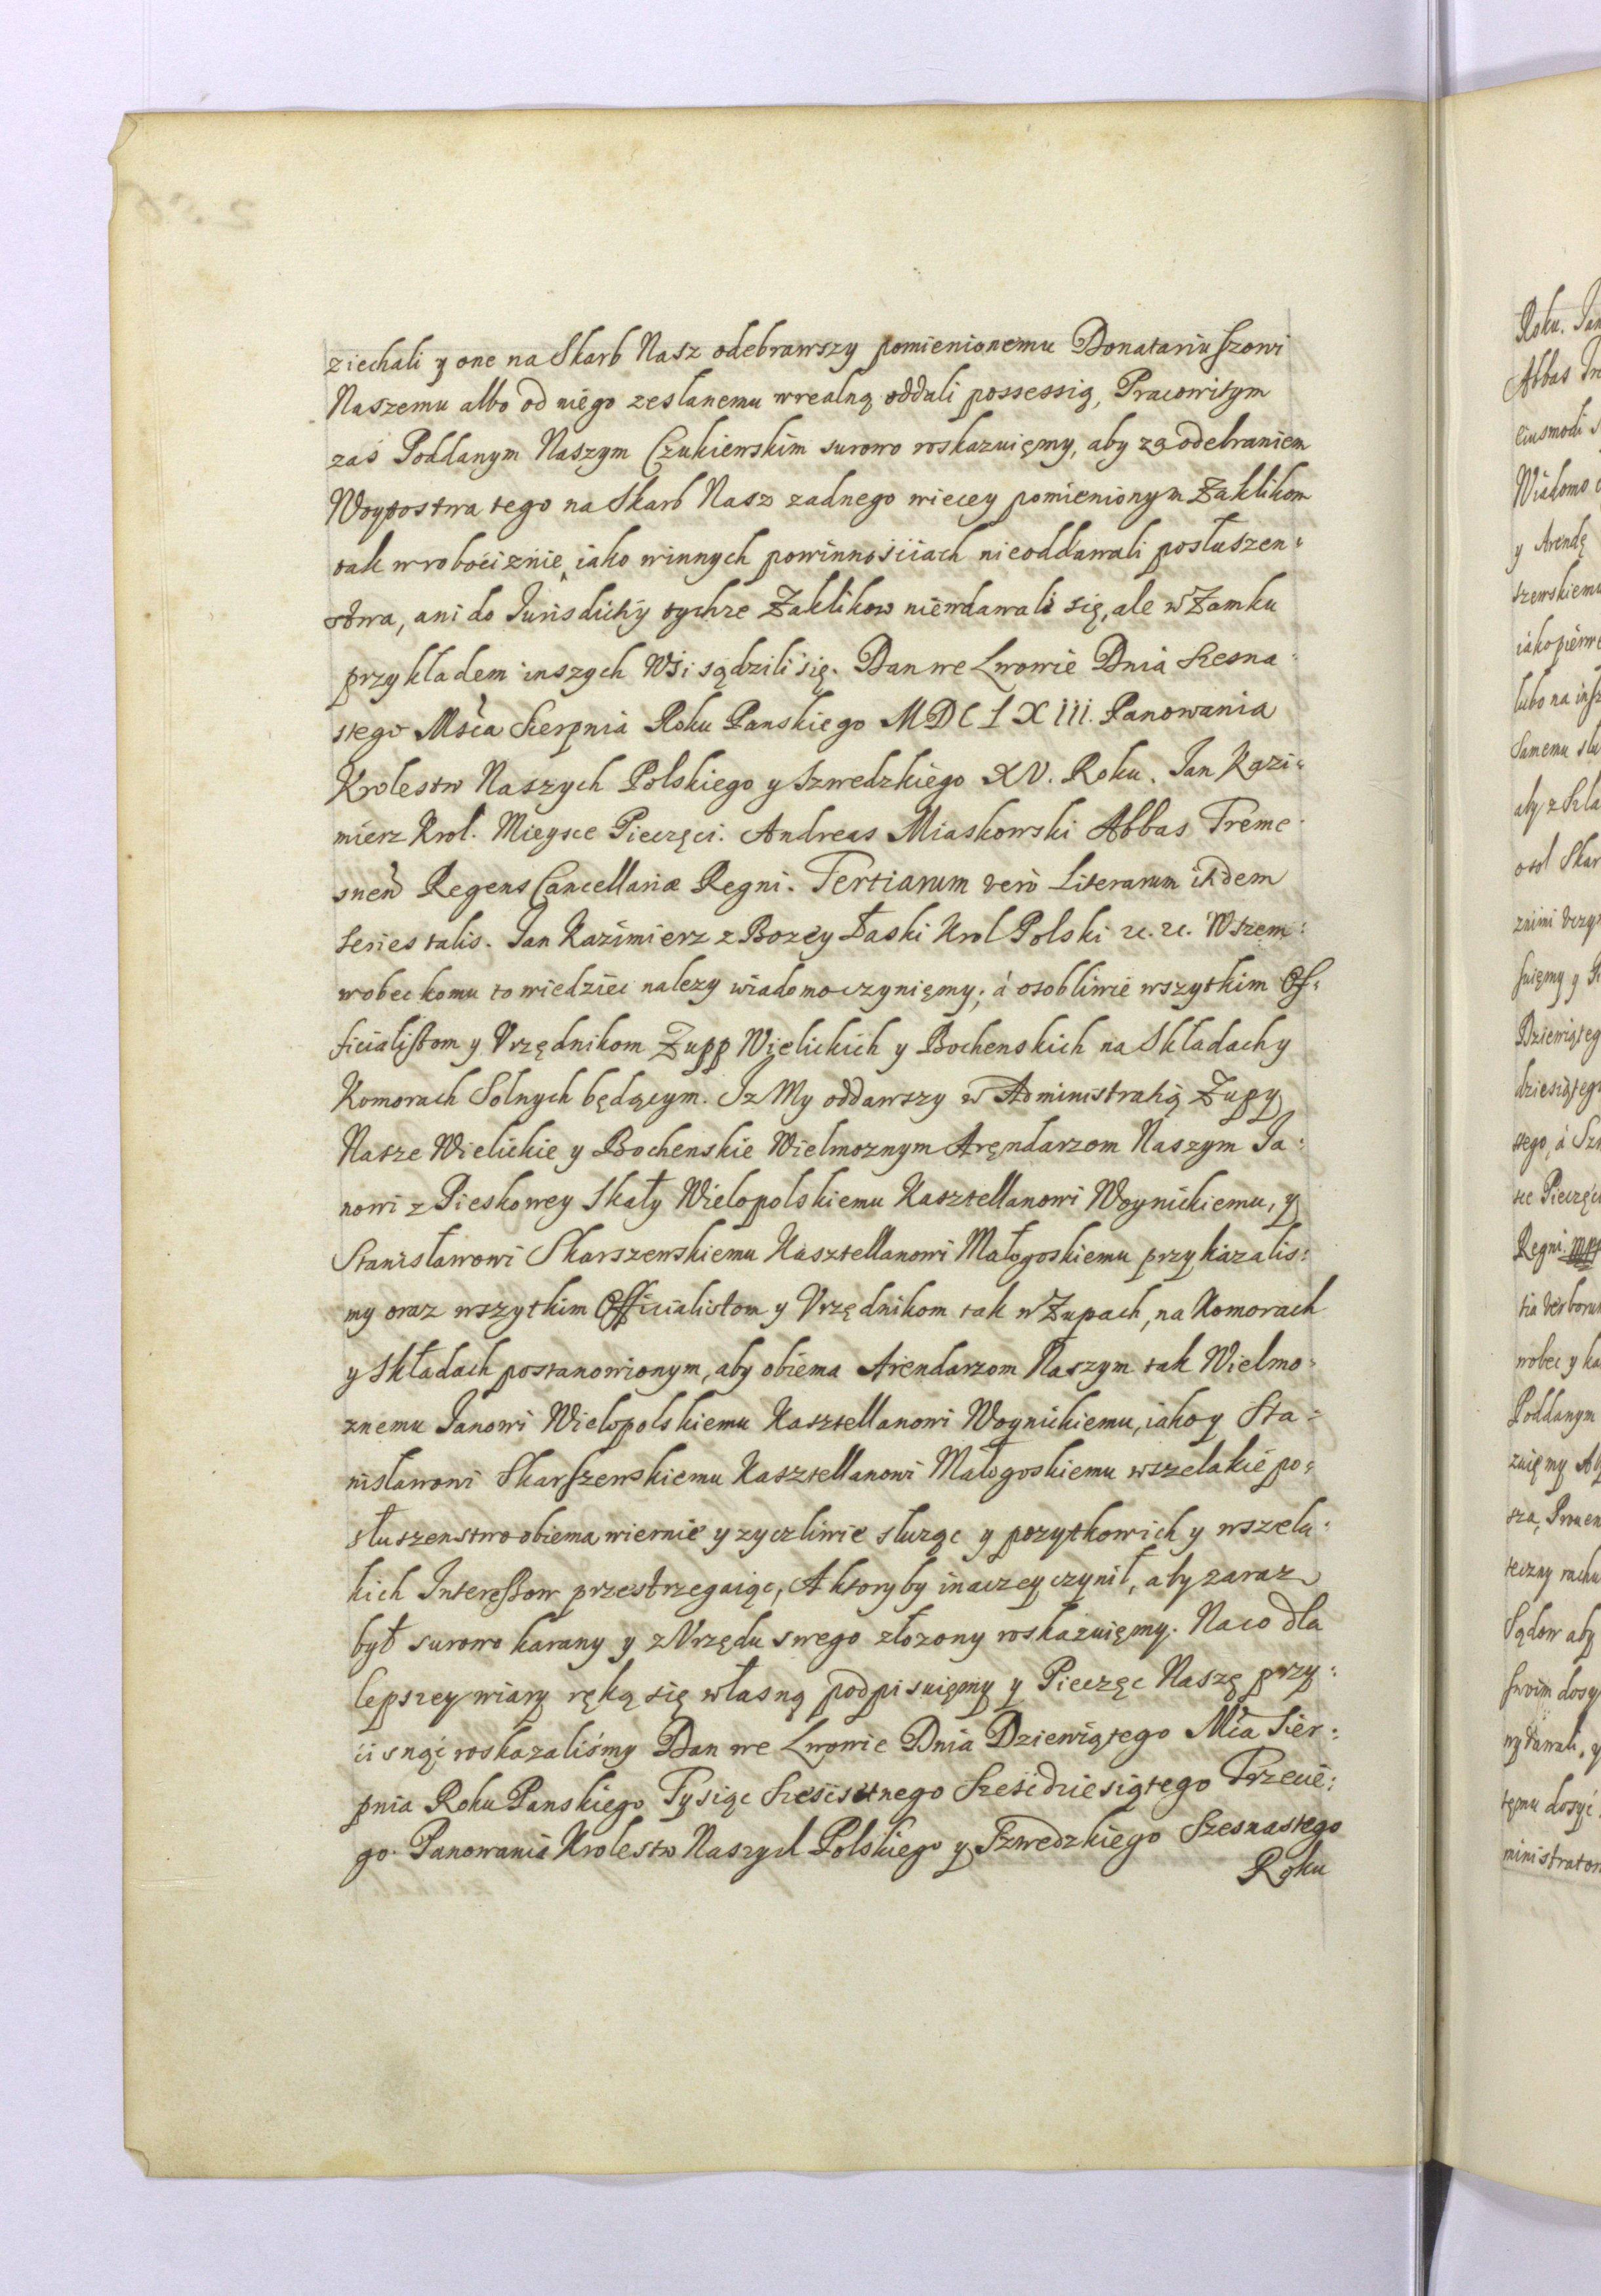 ziechali y one na Skarb Nasz odebrawszy pomienionemu Donatariuszowi
Naszemu albo od niego zesłanemu wrealną oddali possessią, Pracowitym
zaś Poddanym Naszym Czukiewskim surowo roskazuięmy, aby za odebraniem
Woytostwa tego na Skarb Nasz zadnego wiecey pomienionym Zaklikom
tak wrobociznie, iako winnych powinnościach nieoddawali posłuszen:
stwa, ani do Jurisdictÿ tychze Zaklikow niewdawali się, ale w Zamku
przykladem inszych Wsi sądzili się. Dan we Lwowie Dnia Szesna:
stego Msca Sierpnia Roku Panskiego MDCLXIII. Panowania
Krolestw Naszych Polskiego y Szwedzkiego XV. Roku. Jan Kazi:
mierz Krol. Mieysce Pieczęci. Andreas Miaskowski Abbas Treme:
snen Regens Cancellariæ Regni. Tertiarum verò Literarum itidem
series talis. Jan Kazimierz z Bozey Łaski Krol Polski &c. &c. Wszem:
wobec komu to wiedziec nalezy wiadomo czynięmy; à osobliwie wszytkim Of:
ficialistom y Vrzędnikom Zupp Wielickich y Bochenskich na Składach y
Komorach Solnych będącym. Iz My oddawszy w Administratią Zupy
Nasze Wielickie y Bochenskie Wielmoznym Aręndarzom Naszym Ja:
nowi z Pieskowey Skały Wielopolskiemu Kasztellanowi Woynickiemu, y
Stanisławowi Skarszewskiemu Kasztellanowi Małogoskiemu przykazalis:
my oraz wszytkim Officialistom y Vrzędnikom tak w Zupach, na Komorach
y Składach postanowionym, aby obiema Arendarzom Naszym tak Wielmo:
znemu Janowi Wielopolskiemu Kasztellanowi Woynickiemu, iako y Sta:
nisławowi Skarszewskiemu Kasztellanowi Małogoskiemu wszelakie po:
słuszenstwo obiema wiernie y zyczliwie służąc y pozytkow ich y wszela:
kich Interessow przestrzegaiąc, A ktoryby inaczey czynił, aby zaraz
był surowo karany y z Vrzędu swego złozony roskazuięmy. Na co dla
lepszey wiary ręką się własną podpisuięmy y Pieczęc Naszę przy:
ciisnąć roskazaliśmy Dan we Lwowie Dnia Dziewiątego Mca Sier:
pnia Roku Panskiego Tysiąc Szescsetnego Sześcdziesiątego Trzecie:
go. Panowania Krolestw Naszych Polskiego y Szwedzkiego Szesnastego
Roku